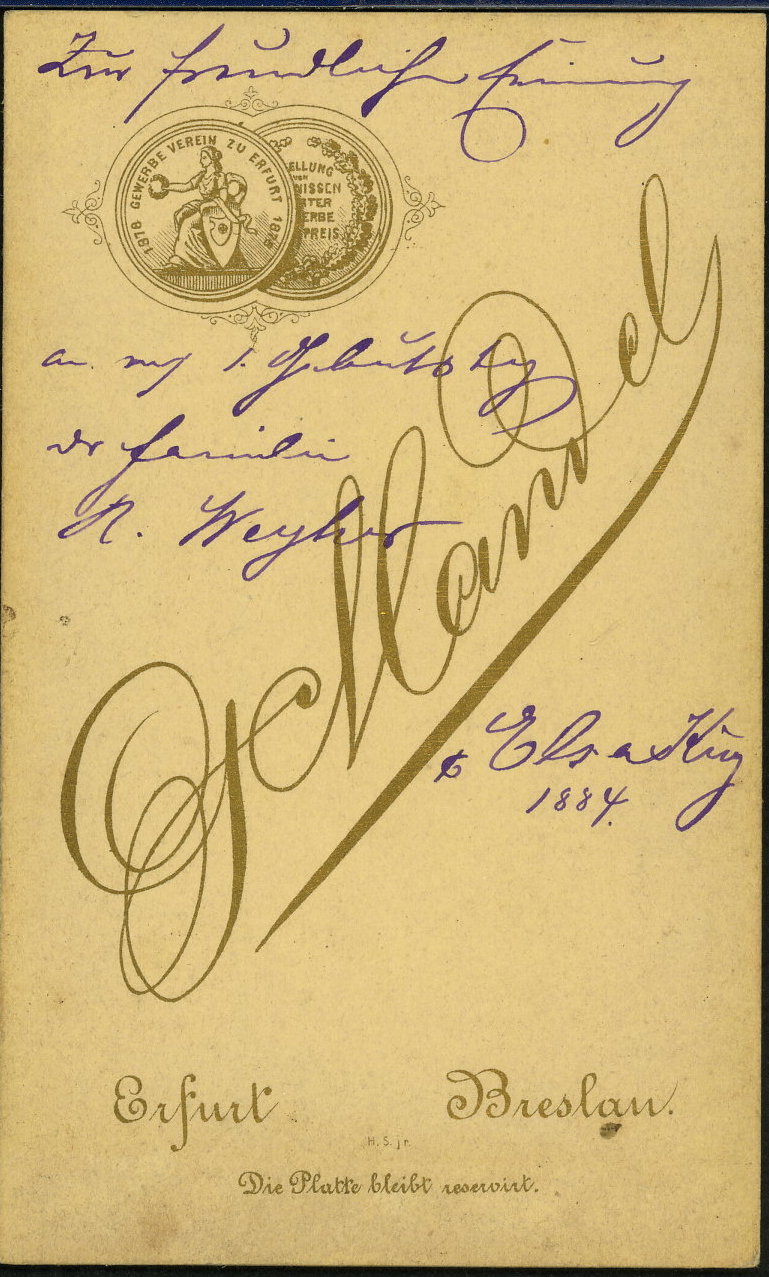 Zur freundlichen Erinnerung
GEWERBE VEREIN ZU ERFURT
1878 1878
ELLUNG
VON
NISSEN
TER
ERBE
PREIS
an 1. Geburtstag
der Familie
R. Weyher
Mandel
Elsa
1884.
Erfurt Breslau.
H. S. jr.
Die Platte bleibt reservirt.